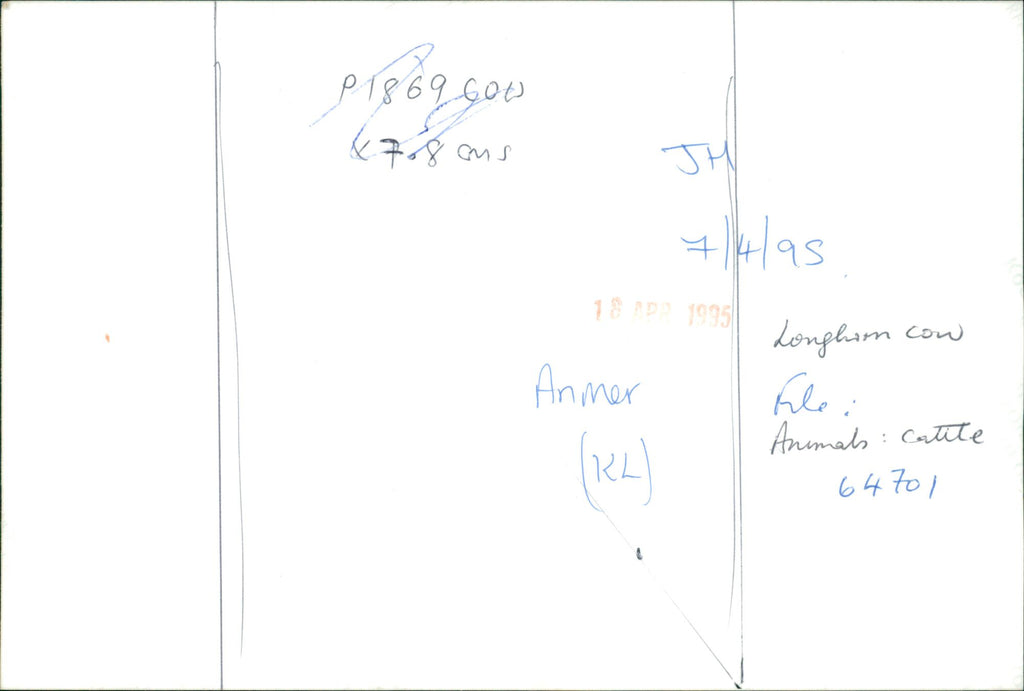 P1869 COW
x 7.8 cms
JH
7/4/95
18 APR 1995
Longhorn cow
Anmer
File :
Animals : cattle
(KL)
64701